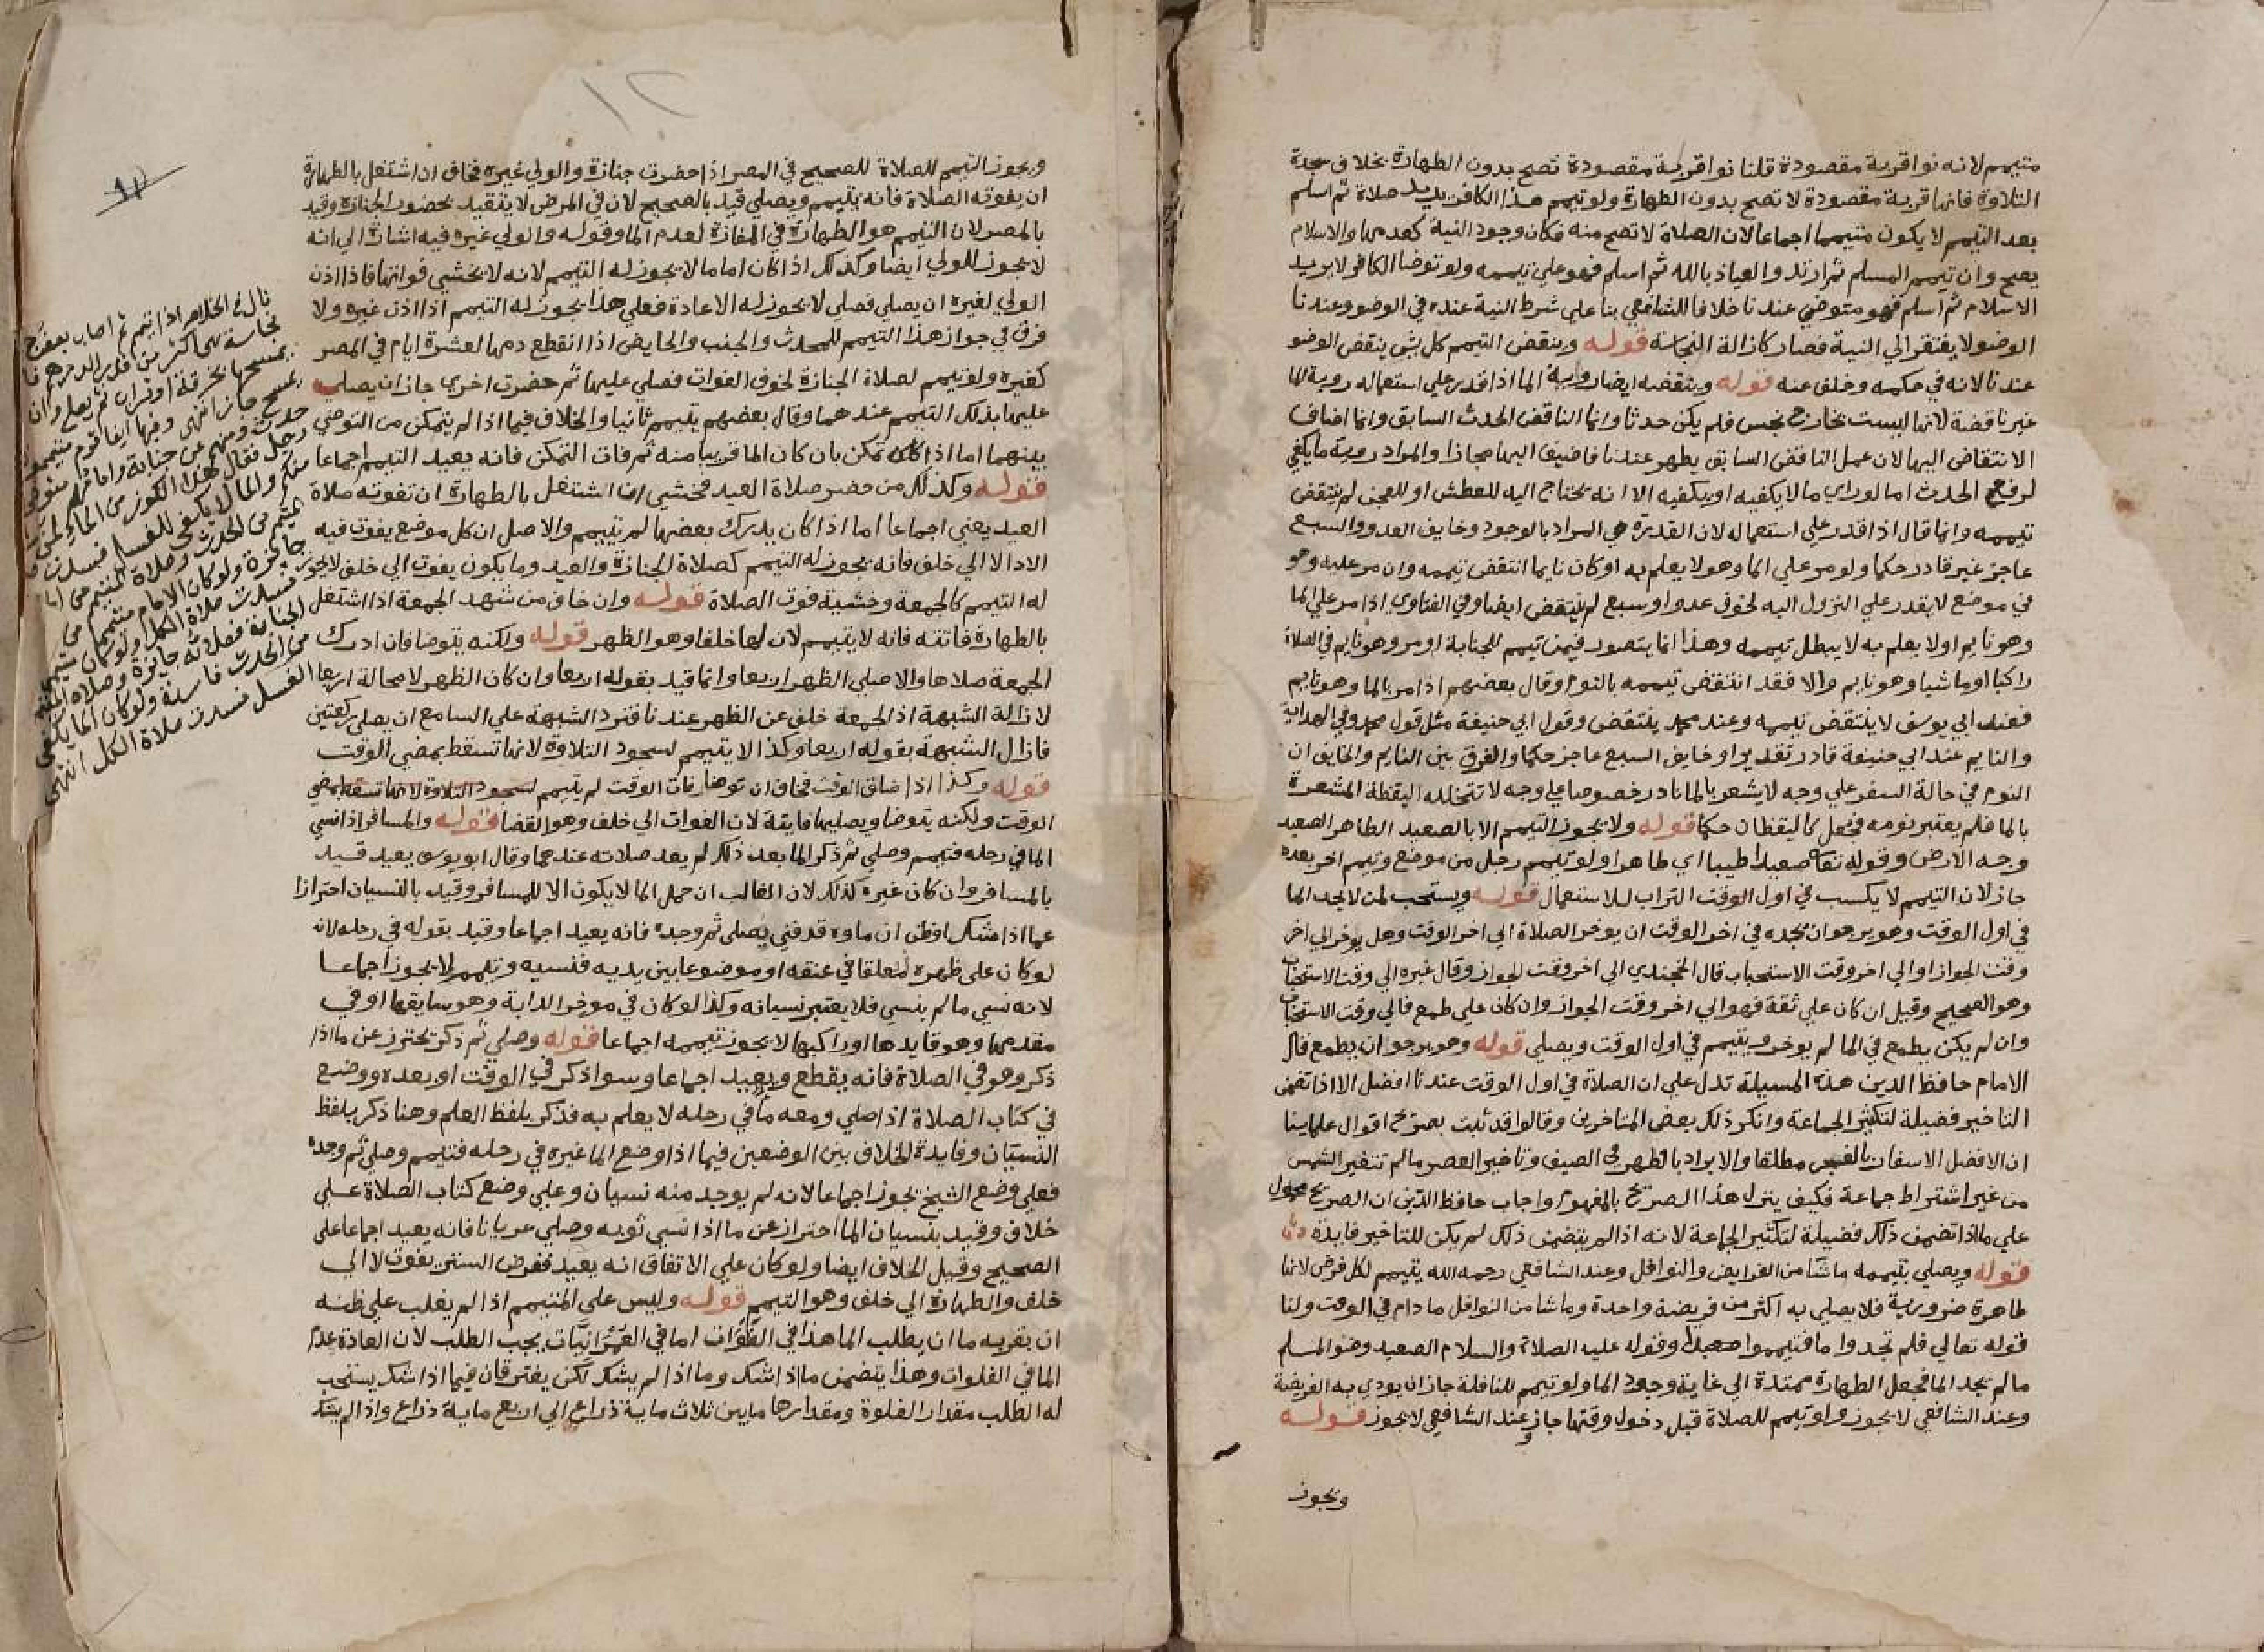 متيمم لانه نوا قربة مقصودة قلنا نوا قربة مقصودة تصح بدون الطهارة بخلاف سجدة
التلاوة فانها قربة مقصودة لا تصح بدون الطهارة ولو تيمم هذا الكافر يريد صلاة ثم اسلم
بعد التيمم لا يكون متيمما اجماعا لان الصلاة لا تصح منه فكان وجود النية كعدمها والاسلام
يصح وان تيمم المسلم ثم ارتد والعياذ بالله ثم اسلم فهو علي تيممه ولو توضا الكافر لا يريد
الاسلام ثم اسلم فهو متوضي عندنا خلافا للشافعي بنا علي شرط النية عنده في الوضو وعندنا
الوضو لا يفتقر الي النية فصار كازالة النجاسة قوله وينقض التيمم كل شي ينقض الوضو
عندنا لانه في حكمه وخلف عنه قوله وينقضه ايضا روية الما اذا قدر علي استعماله روية الما
غير ناقضة لانها ليست بخارج نجس فلم يكن حدثا وانما الناقض الحدث السابق وانما اضاف
الانتقاض اليها لان عمل الناقض السابق يظهر عندنا فاضيف اليها مجازا والمراد روية ما يكفي
لرفع الحدث اما لو راي ما لا يكفيه او يكفيه الا انه يحتاج اليه للعطش او للعجن لم ينتقض
تيممه وانما قال اذا قدر علي استعماله لان القدرة هي المراد بالوجود وخايف العدو والسبع
عاجز غير قادر حكما ولو مر علي الما وهو لا يعلم به او كان نايما انتقض تيممه وان مر عليه وهو
في موضع لا يقدر علي النزول اليه لخوف عدو او سبع لم ينتقض ايضا وفي الفتاوي اذا مر علي الما
وهو نايم او لا يعلم به لا يبطل تيممه وهذا انما يتصور فيمن تيمم للجنابة او مر وهو نايم في الصلاة
راكبا او ماشيا وهو نايم والا فقد انتقض تيممه بالنوم وقال بعضهم اذا مر بالما وهو نايم
فعند ابي يوسف لا ينتقض تيممه وعند محمد ينتقض وقول ابي حنيفة مثل قول محمد وفي الهداية
والنايم عند ابي حنيفة قادر تقديرا وخايف السبع عاجز حكما والفرق بين النايم والخايف ان
النوم في حالة السفر علي وجه لا يشعر بالما نادر خصوصا علي وجه لا تتخلله اليقظة المشعرة
بالما فلم يعتبر نومه فجعل كاليقظان حكما قوله ولا يجوز التيمم الا بالصعيد الطاهر الصعيد
وجه الارض وقوله تعا صعيدا طيبا اي طاهرا ولو تيمم رجل من موضع وتيمم اخر بعده
جاز لان التيمم لا يكسب في اول الوقت التراب للاستعمال قوله ويستحب لمن لا يجد الما
في اول الوقت وهو يرجو ان يجده في اخر الوقت ان يوخر الصلاة الي اخر الوقت وهل يوخر الي اخر
وقت الجواز او الي اخر وقت الاستحباب قال الخجندي الي اخر وقت الجواز وقال غيره الي وقت الاستحباب
وهو الصحيح وقيل ان كان علي ثقة فهو الي اخر وقت الجواز وان كان علي طمع فالي وقت الاستحباب
وان لم يكن يطمع في الما لم يوخر ويتيمم في اول الوقت ويصلي قوله وهو يرجو ان يطمع قال
الامام حافظ الدين هذه المسيلة تدل علي ان الصلاة في اول الوقت عندنا افضل الا اذا تضمن
التاخير فضيلة لتكثير الجماعة وانكر ذلك بعض المتاخرين وقالوا قد ثبت بصريح اقوال علماينا
ان الافضل الاسفار بالفجر مطلقا والابراد بالظهر في الصيف وتاخير العصر ما لم تتغير الشمس
من غير اشتراط جماعة فكيف يترك هذا الصريح بالمفهوم واجاب حافظ الدين ان الصريح محمول
علي ما اذا تضمن ذلك فضيلة لتكثير الجماعة لانه اذا لم يتضمن ذلك لم يكن للتاخير فايدة
قوله ويصلي بتيممه ما شا من الفرايض والنوافل وعند الشافعي رحمه الله يتيمم لكل فرض لانها
طاهرة ضرورية فلا يصلي به اكثر من فريضة واحدة وما شا من النوافل ما دام في الوقت ولنا
قوله تعالي فلم تجدوا ما فتيمموا صعيدا وقوله عليه الصلاة والسلام الصعيد وضو المسلم
ما لم يجد الما فجعل الطهارة ممتدة الي غاية وجود الما ولو تيمم للنافلة جاز ان يودي به الفريضة
وعند الشافعي لا يجوز ولو تيمم للصلاة قبل دخول وقتها جاز وعند الشافعي لا يجوز قوله
ويجوز
١٢
ويجوز التيمم للصلاة للصحيح في المصر اذا حضرت جنازة والولي غيره فخاف ان اشتغل بالطهارة
ان يفوته الصلاة فانه يتيمم ويصلي قيد بالصحيح لان في المرض لا يتقيد بحضور الجنازة وقيد
بالمصر لان التيمم هو الطهارة في المفازة لعدم الما وقوله والولي غيره فيه اشارة الي انه
لا يجوز للولي ايضا وكذلك اذا كان اماما لا يجوز له التيمم لانه لا يخشي فواتها فاذا اذن
الولي لغيره ان يصلي فصلي لا يجوز له الاعادة فعلي هذا يجوز له التيمم اذا اذن غيره ولا
فرق في جواز هذا التيمم للمحدث والجنب والحايض اذا انقطع دمها لعشرة ايام في المصر
كغيره ولو تيمم لصلاة الجنازة لخوف الفوات فصلي عليها ثم حضرت اخري جاز ان يصلي
عليها بذلك التيمم عندهما وقال بعضهم يتيمم ثانيا والخلاف فيما اذا لم يتمكن من التوضي
بينهما اما اذا كان تمكن بان كان الما قريبا منه ثم فات التمكن فانه يعيد التيمم اجماعا
قوله وكذلك من حضر صلاة العيد فخشي ان اشتغل بالطهارة ان تفوته صلاة
العيد يعني اجماعا اما اذا كان يدرك بعضها لم يتيمم والاصل ان كل موضع يفوت فيه
الادا لا الي خلف فانه يجوز له التيمم كصلاة الجنازة والعيد وما يكون يفوت الي خلف لا يجوز
له التيمم كالجمعة وخشية فوت الصلاة قوله وان خاف من شهد الجمعة اذا اشتغل
بالطهارة فاتته فانه لا يتيمم لان لها خلفا وهو الظهر قوله ولكنه يتوضا فان ادرك
الجمعة صلاها والا صلي الظهر اربعا وانما قيد بقوله اربعا وان كان الظهر لا محالة اربعا
لازالة الشبهة اذ الجمعة خلف عن الظهر عندنا فترد الشبهة علي السامع ان يصلي ركعتين
فازال الشبهة بقوله اربعا وكذا لا يتيمم لسجود التلاوة لانها تسقط بمضي الوقت
قوله وكذا اذا ضاق الوقت فخاف ان توضا فات الوقت لم يتيمم لسجود التلاوة لانها تسقط بمضي
الوقت ولكنه يتوضا ويصليها فايتة لان الفوات الي خلف وهو القضا قوله والمسافر اذا نسي
الما في رحله فتيمم وصلي ثم ذكر الما بعد ذلك لم يعد صلاته عندهما وقال ابو يوسف يعيد قيد
بالمسافر وان كان غيره كذلك لان الغالب ان حمل الما لا يكون الا للمسافر وقيد بالنسيان احترازا
عما اذا شك او ظن ان ماوه قد فني يصلي ثم وجده فانه يعيد اجماعا وقيد بقوله في رحله لانه
لو كان علي ظهره او معلقا في عنقه او موضوعا بين يديه فنسيه وتيمم لا يجوز اجماعا
لانه نسي ما لم ينسي فلا يعتبر نسيانه وكذا لو كان في موخر الدابة وهو سايقها او في
مقدمها وهو قايدها او راكبها لا يجوز تيممه اجماعا قوله وصلي ثم ذكر تحترز عن ما اذا
ذكر وهو في الصلاة فانه يقطع ويعيد اجماعا وسوا ذكر في الوقت او بعده ووضع
في كتاب الصلاة اذا صلي ومعه ما في رحله لا يعلم به فذكر بلفظ العلم وهنا ذكر بلفظ
النسيان وفايدة الخلاف بين الوضعين فيما اذا وضع الما غيره في رحله فتيمم وصلي ثم وجده
فعلي وضع الشيخ يجوز اجماعا لانه لم يوجد منه نسيان وعلي وضع كتاب الصلاة علي
خلاف وقيد بنسيان الما احتراز عن ما اذا نسي ثوبه وصلي عريانا فانه يعيد اجماعا علي
الصحيح وقيل الخلاف ايضا ولو كان علي الاتفاق انه يعيد ففرض الستر يفوت لا الي
خلف والطهارة الي خلف وهو التيمم قوله وليس علي المتيمم اذا لم يغلب علي ظنه
ان بقربه ما ان يطلب الما هذا في الفلوات اما في العمرانيات يجب الطلب لان العادة عدم
الما في الفلوات وهذا يتضمن ما اذا شك وما اذا لم يشك لكن يفترقان فيما اذا شك يستحب
له الطلب مقدار الغلوة ومقدارها ما بين ثلاث ماية ذراع الي اربع ماية ذراع واذا لم يشك
قال في الخلاصة اذا تيمم ثم اصاب بعضه
نجاسة هي اكثر من قدر الدرهم
يمسحها بخرقة او تراب ثم يصلي وان